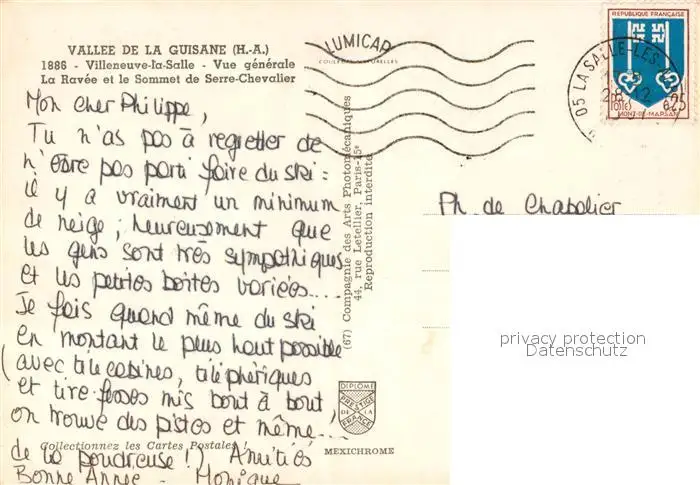 VALLEE DE LA GUISANE (H.-A.)
1886 - Villeneuve-la-Salle - Vue générale
La Ravée et le Sommet de Serre-Chevalier
Mon cher Philippe,
Tu n'as pas à regretter de
n'être pas parti faire du ski :
il y a vraiment un minimum
de neige ; heureusement que
les gens sont très sympathiques
et les petites boîtes variées....
Je fais quand même du ski
en montant le plus haut possible
(avec télécabines, téléphériques
et tire-fesses mis bout à bout,
on trouve des pistes et même...
de la poudreuse !) Amitiés
Bonne Année - Monique
Collectionnez les Cartes Postales
LUMICAP
COULEURS NATURELLES
(67) Compagnie des Arts Photomécaniques
44, rue Letellier, Paris-15e
Reproduction interdite
DIPLOME
PRESTIGE
DE LA
FRANCE
MEXICHROME
REPUBLIQUE FRANÇAISE
POSTES
0,25
MONT-DE-MARSAN
05 LA SALLE-LES
Ph. de Chabalier
privacy protection
Datenschutz